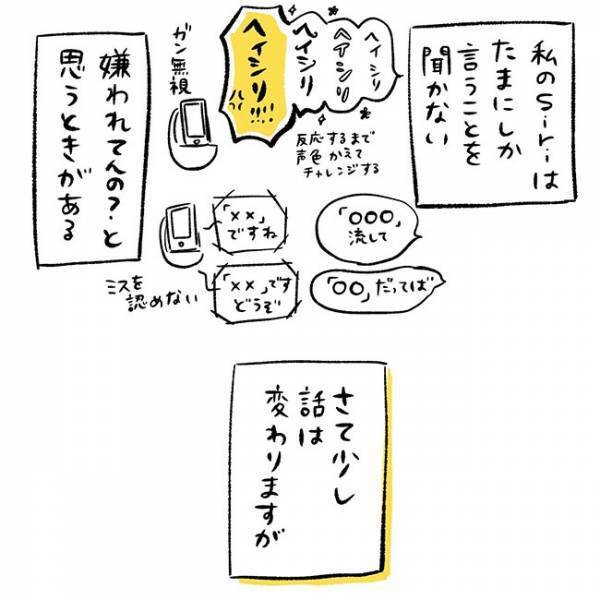 私のSiriは
たまにしか
言うことを
聞かない
ヘイシリ
ヘイシリ
ヘイシリ
ヘイシリ!!!!
反応するまで
声色かえて
チャレンジする
ガン無視
嫌われてんの?と
思うときがある
「○○○」
流して
「××」
ですね
「○○」だってば
「××」です
どうぞ
ミスを
認めない
さて少し
話は
変わりますが